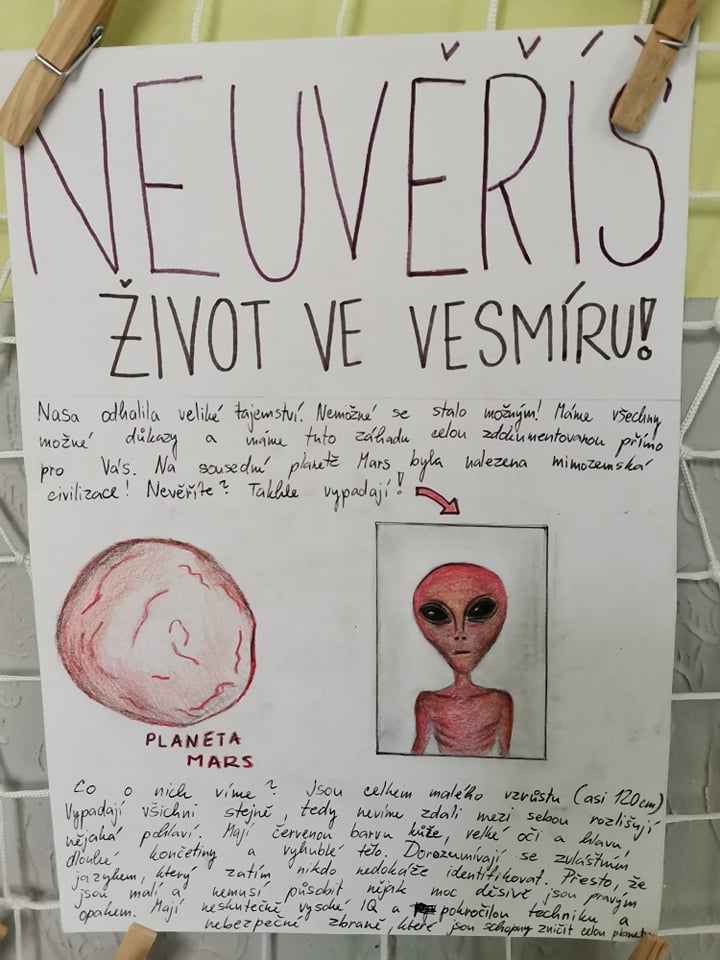 NEUVĚŘÍŠ
ŽIVOT VE VESMÍRU!
Nasa odhalila veliké tajemství. Nemožné se stalo možným! Máme všechny
možné důkazy a máme tuto záhadu celou zddkumentovanou přímo
pro Vás. Na sousední planetě Mars byla nalezena mimozemská
civilizace! Nevěříte? Takhle vypadají!
PLANETA
MARS
Co o nich víme? Jsou celkem malého vzrůstu (asi 120cm)
Vypadají všichni stejně, tedy nevíme zdali mezi sebou rozlišují
nějaká pohlaví. Mají červenou barvu kůže, velké oči a hlavu,
dlouhé končetiny a vyhublé tělo. Dorozumívají se zvláštním
jazykem, který zatím nikdo nedokáže identifikovat. Přesto, že
jsou malí a nemusí působit nějak moc děsivě jsou pravým
opakem. Mají neskutečně vysoké IQ a pokročilou techniku a
nebezpečné zbraně, které jsou schopny zničit celou planetu